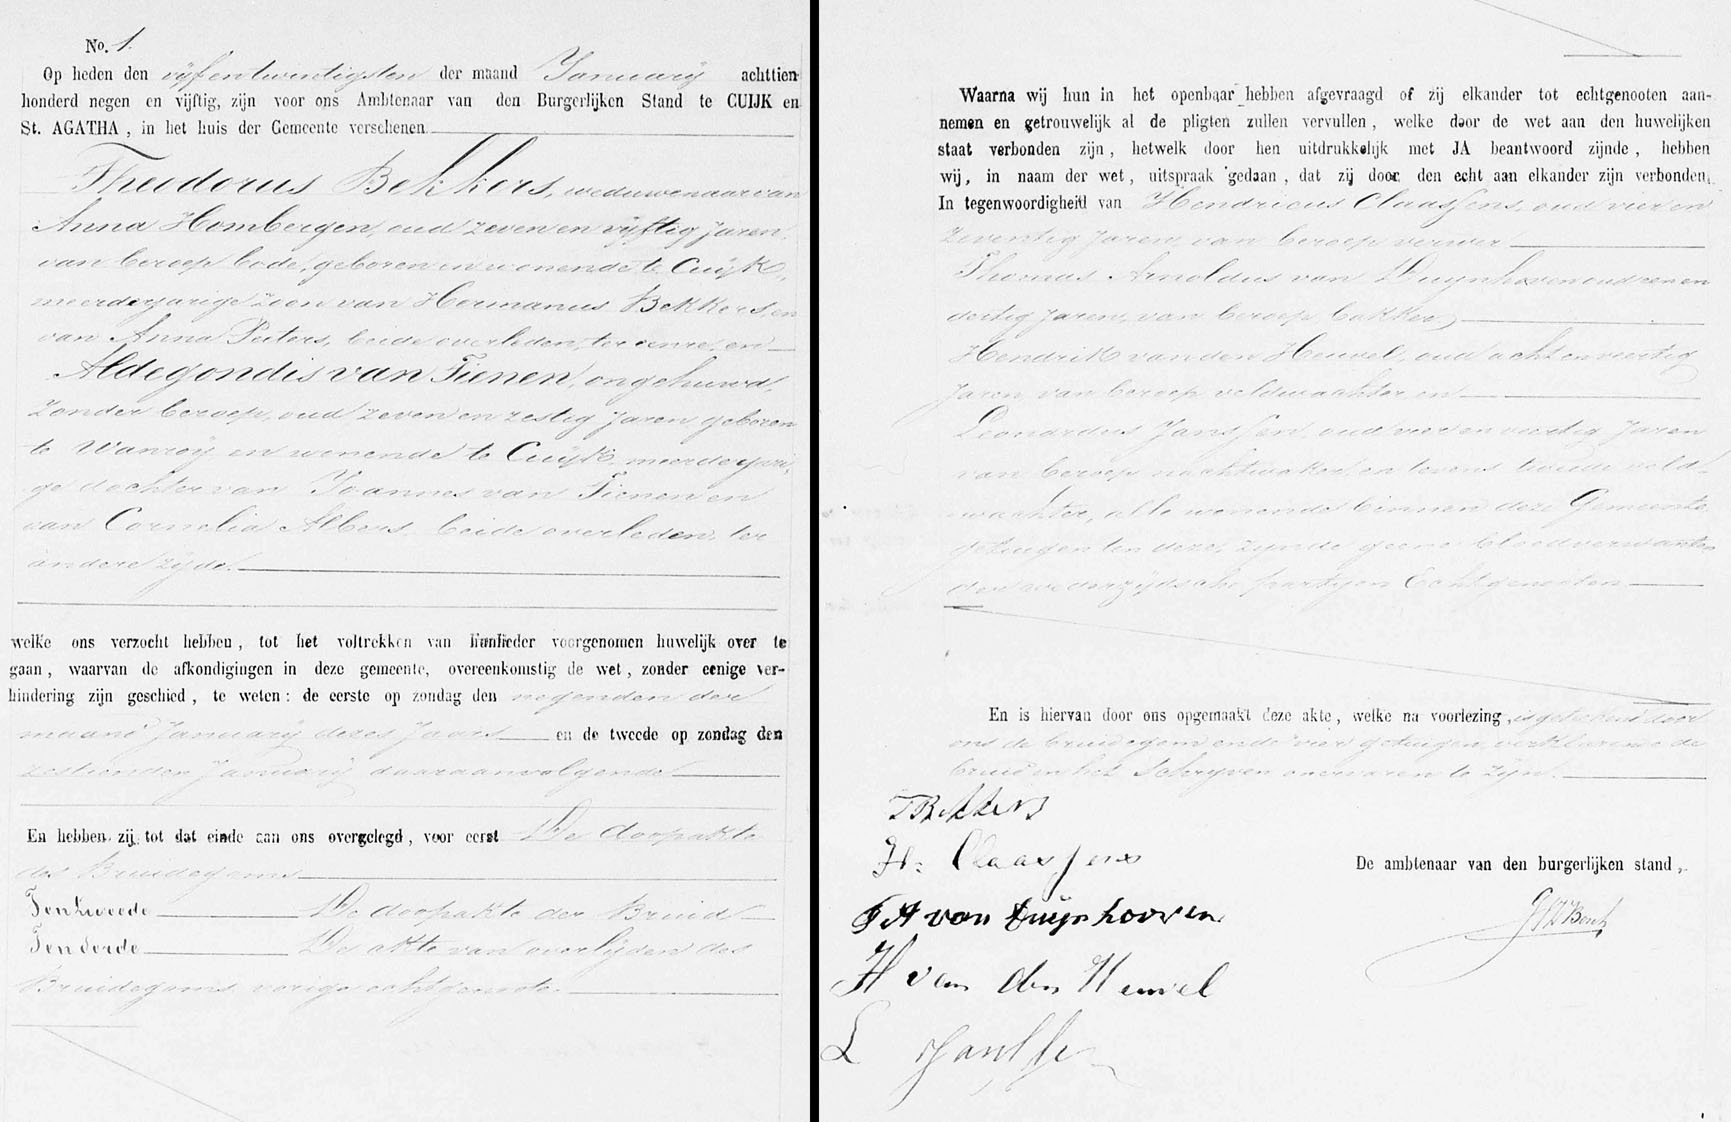 No. 1.
Op heden den vijfentwintigsten der maand Januarij achttien
honderd negen en vijftig, zijn voor ons Ambtenaar van den Burgerlijken Stand te CUIJK en
St. AGATHA, in het huis der Gemeente verschenen
Theodorus Bekkers, weduwenaar van
Anna Hombergen, oud zeven en vijftig Jaren
van beroep bode, geboren en wonende te Cuijk,
meerderjarige zoon van Hermanus Bekkers, en
van Anna Peeters, beide overleden, ter eenre, en
Aldegondis van Tienen, ongehuwd,
zonder beroep, oud zeven en zestig Jaren, geboren
te Wanroij en wonende te Cuijk, meerderjari-
ge dochter van Joannes van Tienen en
van Cornelia Albers, beide overleden, ter
andere zijde.
welke ons verzocht hebben, tot het voltrekken van hunlieder voorgenomen huwelijk over te
gaan, waarvan de afkondigingen in deze gemeente, overeenkomstig de wet, zonder eenige ver-
hindering zijn geschied, te weten: de eerste op zondag den negenden der
maand Januarij dezes Jaars en de tweede op zondag den
zestienden Januarij daaraanvolgende
En hebben zij tot dat einde aan ons overgelegd, voor eerst De doopakte
des Bruidegoms
Ten tweede De doopakte der Bruid
Ten derde De akte van overlijden des
Bruidegoms vorige echtgenoote.
Waarna wij hun in het openbaar hebben afgevraagd of zij elkander tot echtgenooten aan-
nemen en getrouwelijk al de pligten zullen vervullen, welke door de wet aan den huwelijken
staat verbonden zijn, hetwelk door hen uitdrukkelijk met JA beantwoord zijnde, hebben
wij, in naam der wet, uitspraak gedaan, dat zij door den echt aan elkander zijn verbonden.
In tegenwoordigheid van Hendricus Claassens, oud vier en
zeventig Jaren, van beroep verwer
Thomas Arnoldus van Duijnhoven oud een en
dertig Jaren, van beroep bakker
Hendrik van den Heuvel, oud acht en veertig
Jaren van beroep veldwachter, en
Leonardus Janssen, oud vier en veertig Jaren
van beroep nachtwaker, en tevens tweede veld-
wachter, alle wonende binnen deze Gemeente
getuigen ten deze, zijnde geene bloedverwanten
den wederzijdsche partijen Echtgenooten
En is hiervan door ons opgemaakt deze akte, welke na voorlezing, is geteekend door
ons de bruidegom en de vier getuigen, verklarende de
bruid in het schrijven onervaren te zijn.
T Bekkers
H: Claassens
De ambtenaar van den burgerlijken stand,
T A van Duijnhooven
H van den Heuvel
L Janssen